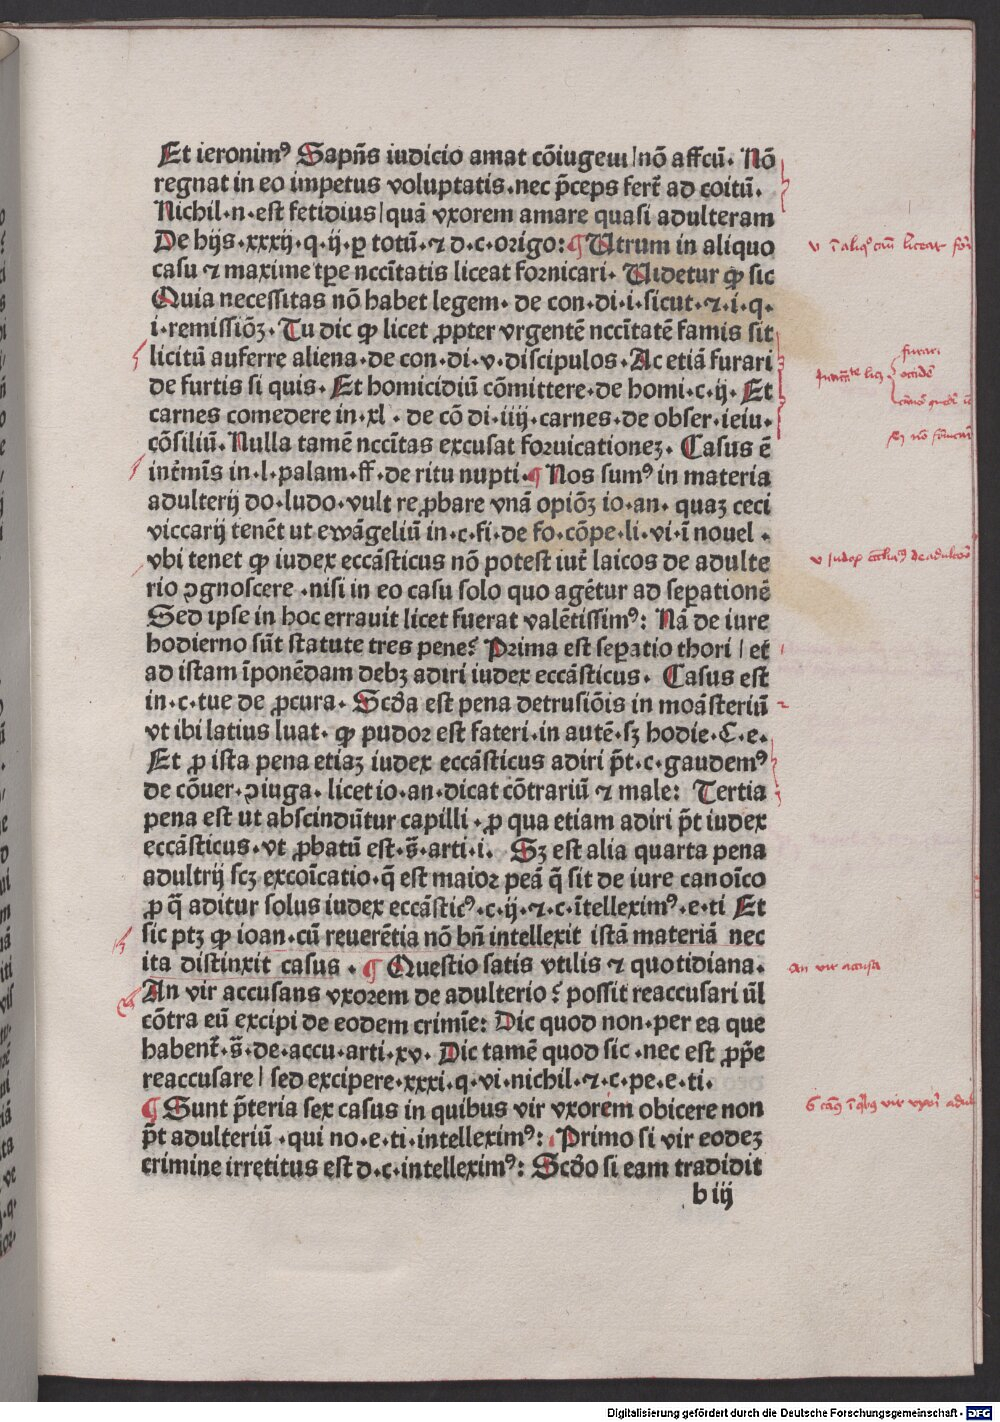 Et ieronimꝰ Sapñs iudicio amat cõiugeui|nõ affcũ. Nõ
regnat in eo impetus voluptatis.nec p̃ceps fert᷑ ad coitũ.
Nichil.n.est fetidius|quã vxorem amare quasi adulteram
De hijs.xxxij.q.ij.ꝑ totũ.⁊ d.c.origo: ¶ Utrum in aliquo
casu ⁊ maxime tꝑe nccĩtatis liceat fornicari. Uidetur ꝙ sic
Quia necessitas nõ habet legem. de con.di.i.sicut.⁊.i.q.
i.remissiõꝫ. Tu dic ꝙ licet ꝓpter vrgentẽ nccĩtatẽ famis sit
licitũ auferre aliena.de con.di.v.discipulos.Ac etiã furari
de furtis si quis. Et homicidiũ cõmittere.de homi.c.ij. Et
carnes comedere in.xl. de cõ di.iiij.carnes.de obser.ieiu.
cõsiliũ. Nulla tamẽ nccĩtas excusat foruicationeꝫ. Casus ẽ
int᷑mĩs in.l.palam.ff.de ritu nupti.¶ Nos sumꝰ in materia
adulterij do.ludo.vult reꝓbare vnã opiõꝫ io.an. quaꝫ ceci
viccarij tenẽt ut ewãgeliũ in.c.fi.de fo.cõpe.li.vi.ĩ nouel.
vbi tenet ꝙ iudex eccãsticus nõ potest iut᷑ laicos de adulte
rio ꝯgnoscere.nisi in eo casu solo quo agẽtur ad seꝑationẽ
Sed ipse in hoc errauit licet fuerat valẽtissimꝰ: Nã de iure
hodierno sũt statute tres pene: Prima est seꝑatio thori | et
ad istam ĩponẽdam debꝫ adiri iudex eccãsticus. Casus est
in.c.tue de ꝓcura. Scd̃a est pena detrusiõis in moãsteriũ
vt ibi latius luat. ꝙ pudor est fateri.in autẽ.sꝫ hodie.C.e.
Et ꝓ ista pena etiaꝫ iudex eccãsticus adiri p̃t.c.gaudemꝰ
de cõuer.ꝯiuga.licet io.an.dicat cõtrariũ ⁊ male: Tertia
pena est ut abscindũtur capilli.ꝓ qua etiam adiri p̃t iudex
eccãsticus.vt ꝓbatũ est.s̃.arti.i. Sꝫ est alia quarta pena
adultrij scꝫ excoĩcatio.q̃ est maior peã q̃ sit de iure canoĩco
ꝓ q̃ aditur solus iudex eccãsticꝰ.c.ij.⁊.c.ĩtelleximꝰ.e.ti Et
sic ptꝫ ꝙ ioan.cũ reuerẽtia nõ bñ intellexit istã materiã nec
ita distinxit casus. ¶ Questio satis vtilis ⁊ quotidiana.
An vir accusans vxorem de adulterio: possit reaccusari ũl
cõtra eũ excipi de eodem crimĩe: Dic quod non.per ea que
habent᷑.s̃.de.accu.arti.xv. Dic tamẽ quod sic.nec est ꝓp̃e
reaccusare| sed excipere.xxxi.q.vi.nichil.⁊.c.pe.e.ti.
¶ Sunt p̃teria sex casus in quibus vir vxorem obicere non
p̃t adulteriũ.qui no.e.ti.intelleximꝰ: Primo si vir eodeꝫ
crimine irretitus est d.c.intelleximꝰ: Scd̃o si eam tradidit
b iij
furar.
An vir accusa
Digitalisierung gefördert durch die Deutsche Forschungsgemeinschaft - DFG